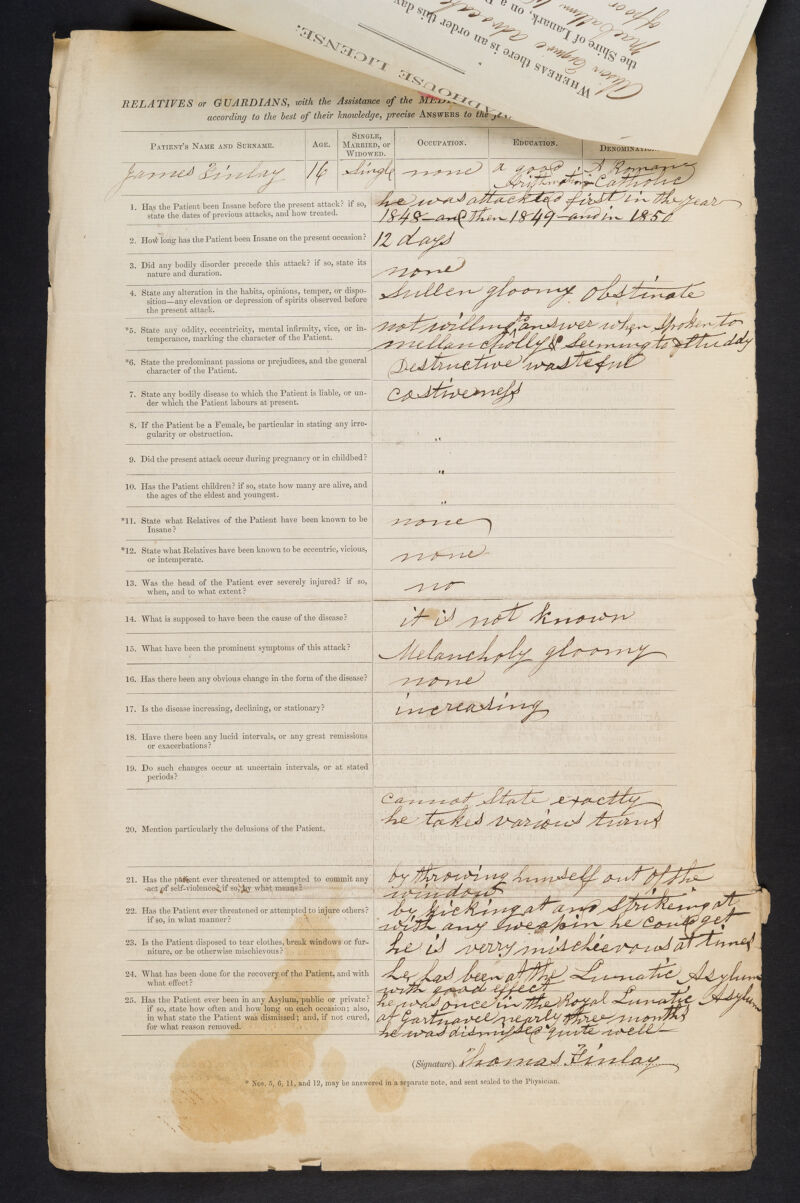 MADHOUSE LICENSE.
WHEREAS there is an order this day
the Shire of Lanark, on a
RELATIVES or GUARDIANS, with the Assistance of the
according to the best of their knowledge, precise ANSWERS to the
PATIENT'S NAME AND SURNAME. AGE. SINGLE, MARRIED, OR WIDOWED. OCCUPATION. EDUCATION. DENOMINATION
James Finlay 16 Single none a good Arithmetic A Romane Catholic
1. Has the Patient been Insane before the present attack? if so, state the dates of previous attacks, and how treated.
he was attackted first in the year
1848 – and then 1849 – and in 1850
2. How long has the Patient been Insane on the present occasion?
12 days
3. Did any bodily disorder precede this attack? if so, state its nature and duration.
none
4. State any alteration in the habits, opinions, temper, or disposition—any elevation or depression of spirits observed before the present attack.
Sullen gloomy obstinate
*5. State any oddity, eccentricity, mental infirmity, vice, or intemperance, marking the character of the Patient.
not willing to answer when Spoken to
mellancholly & Seeming to Studdy
*6. State the predominant passions or prejudices, and the general character of the Patient.
Destructive wasteful
7. State any bodily disease to which the Patient is liable, or under which the Patient labours at present.
Costiveness
8. If the Patient be a Female, be particular in stating any irregularity or obstruction.
"
9. Did the present attack occur during pregnancy or in childbed?
"
10. Has the Patient children? if so, state how many are alive, and the ages of the eldest and youngest.
"
*11. State what Relatives of the Patient have been known to be Insane?
none
*12. State what Relatives have been known to be eccentric, vicious, or intemperate.
none
13. Was the head of the Patient ever severely injured? if so, when, and to what extent?
no
14. What is supposed to have been the cause of the disease?
it is not known
15. What have been the prominent symptoms of this attack?
Melancholy gloomy
16. Has there been any obvious change in the form of the disease?
none
17. Is the disease increasing, declining, or stationary?
increasing
18. Have there been any lucid intervals, or any great remissions or exacerbations?
19. Do such changes occur at uncertain intervals, or at stated periods?
20. Mention particularly the delusions of the Patient.
cannot State exactly
he takes various turns
21. Has the patient ever threatened or attempted to commit any act of self-violence; if so, by what means?
by throwing himself out of the
window
22. Has the Patient ever threatened or attempted to injure others? if so, in what manner?
by kicking at and Strikeing at
with any weapin he could get
23. Is the Patient disposed to tear clothes, break windows or furniture, or be otherwise mischievous?
he is verry mischeevous at times
24. What has been done for the recovery of the Patient, and with what effect?
he has been at the Lunatic Asylum
with good effect
25. Has the Patient ever been in any Asylum, public or private? if so, state how often and how long on each occasion; also, in what state the Patient was dismissed; and, if not cured, for what reason removed.
he was once in the Royal Lunatic Asylum
at Gartnavel nearly three months
he was dismissed quite well
(Signature). Thomas Finlay
* Nos. 5, 6, 11, and 12, may be answered in a separate note, and sent sealed to the Physician.